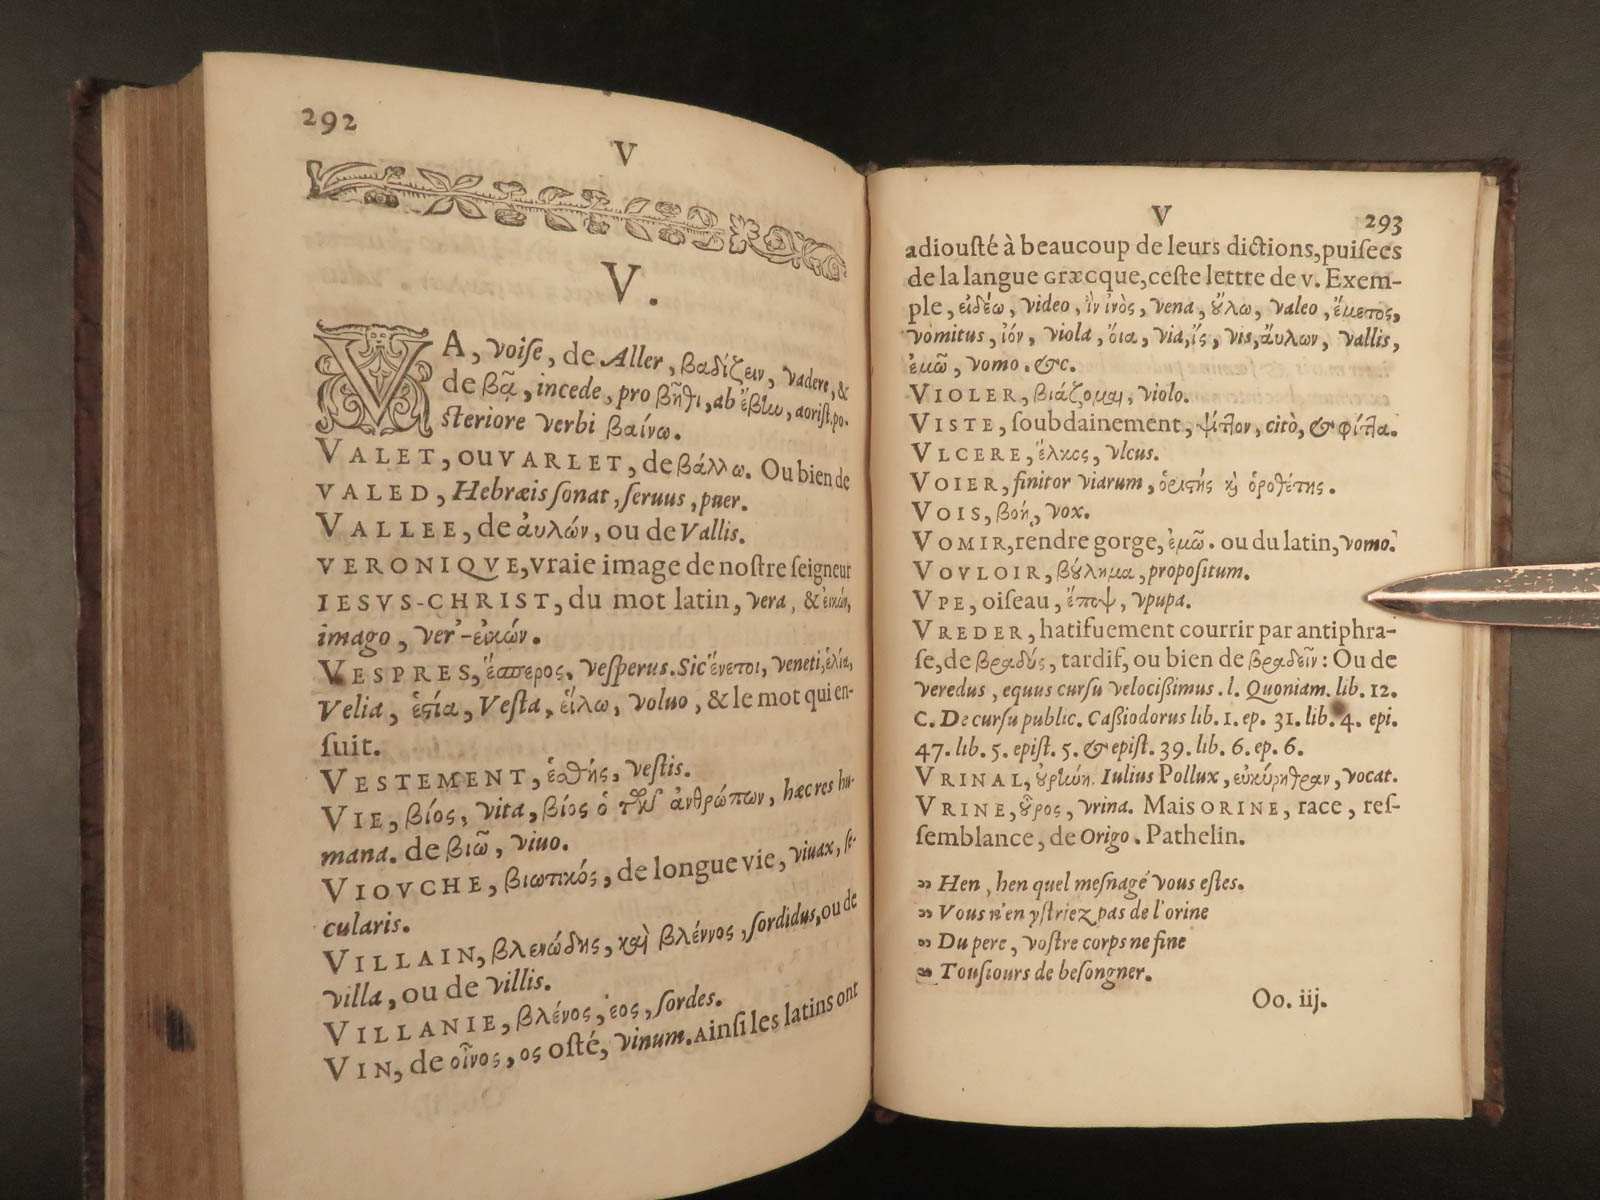 292
V
V.
VA, voiſe, de Aller, βαδίζειν, vadere, &
de βᾶ, incede, pro βῆθι, ab ἔβην, aoriſt. po-
ſteriore verbi βαίνω.
VALET, ou VARLET, de βάλλω. Ou bien de
VALED, Hebræis ſonat, ſeruus, puer.
VALLEE, de ἀυλών, ou de Vallis.
VERONIQVE, vraie image de noſtre ſeigneur
IESVS-CHRIST, du mot latin, vera, & ἐικών,
imago, ver'-ἐικών.
VESPRES, ἕσπερος, veſperus. Sic ἕνετοι, veneti, ἑλία,
Velia, ἑστία, Veſta, εἵλω, voluo, & le mot qui en-
ſuit.
VESTEMENT, ἐσθής, veſtis.
VIE, βίος, vita, βίος ὁ τῶν ἀνθρώπων, hæc res hu-
mana. de βιῶ, viuo.
VIOVCHE, βιωτικός, de longue vie, viuax, ſe-
cularis.
VILLAIN, βλενώδης, καὶ βλέννος, ſordidus, ou de
villa, ou de villis.
VILLANIE, βλένος, έος, ſordes.
VIN, de οἶνος, ος oſté, vinum. Ainſi les latins ont
V 293
adiouſté à beaucoup de leurs dictions, puiſees
de la langue Græcque, ceſte lettre de v. Exem-
ple, εἰδέω, video, ἲν ἰνὸς, vena, ȣ̓́λω, valeo, ἔμετος,
vomitus, ἰόν, viola, ὅια, via, ἴς, vis, ἄυλων, vallis,
ἐμῶ, vomo. &c.
VIOLER, βιάζομαι, violo.
VISTE, ſoubdainement, ψίτλον, citò, & φίτλα.
VLCERE, ἕλκος, vlcus.
VOIER, finitor viarum, ὁριστής καὶ ὁροθέτης.
VOIS, βοή, vox.
VOMIR, rendre gorge, ἐμῶ. ou du latin, vomo.
VOVLOIR, βȣ́λημα, propoſitum.
VPE, oiſeau, ἔποψ, vpupa.
VREDER, hatifuement courrir par antiphra-
ſe, de βραδύς, tardif, ou bien de βραδεῖν: Ou de
veredus, equus curſu velocißimus. l. Quoniam. lib. 12.
C. De curſu public. Caßiodorus lib. 1. ep. 31. lib. 4. epi.
47. lib. 5. epiſt. 5. & epiſt. 39. lib. 6. ep. 6.
VRINAL, Iulius Pollux, vocat.
VRINE, ȣ̓͂ρος, vrina. Mais ORINE, race, reſ-
ſemblance, de Origo. Pathelin.
„ Hen, hen quel meſnagé vous eſtes.
„ Vous n'en yſtriez pas de l'orine
„ Du pere, voſtre corps ne fine
„ Touſiours de beſongner.
Oo. iij.